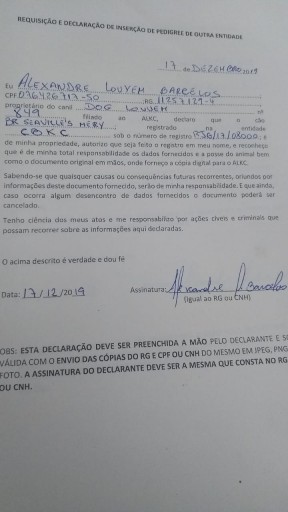 REQUISIÇÃO E DECLARAÇÃO DE INSERÇÃO DE PEDIGREE DE OUTRA ENTIDADE
17 de DEZEMBRO, 2019
Eu ALEXANDRE LOUVEM BARCELOS
CPF 076426717-50 RG 11257129-4
proprietário do canil DOG LOUVEM nº
849 filiado ao ALKC, declaro que o cão
BR SLAVILLE'S MERY registrado na entidade
CBKC sob o número de registro 36/17/08000, é
de minha propriedade, autorizo que seja feito o registro em meu nome, e reconheço
que é de minha total responsabilidade os dados fornecidos e a posse do animal bem
como o documento original em mãos, onde forneço a cópia digital para o ALKC.
Sabendo-se que quaisquer causas ou consequências futuras recorrentes, oriundos por
informações deste documento fornecido, serão de minha responsabilidade. E que ainda,
caso ocorra algum desencontro de dados fornecidos o documento poderá ser
cancelado.
Tenho ciência dos meus atos e me responsabilizo por ações civeis e criminais que
possam recorrer sobre as informações aqui declaradas.
O acima descrito é verdade e dou fé
Data: 17/12/2019 Assinatura: Alexandre L Barcelos
(igual ao RG ou CNH)
OBS: ESTA DECLARAÇÃO DEVE SER PREENCHIDA A MÃO PELO DECLARANTE E SÓ
VÁLIDA COM O ENVIO DAS CÓPIAS DO RG E CPF OU CNH DO MESMO EM JPEG, PNG
FOTO. A ASSINATURA DO DECLARANTE DEVE SER A MESMA QUE CONSTA NO RG
OU CNH.